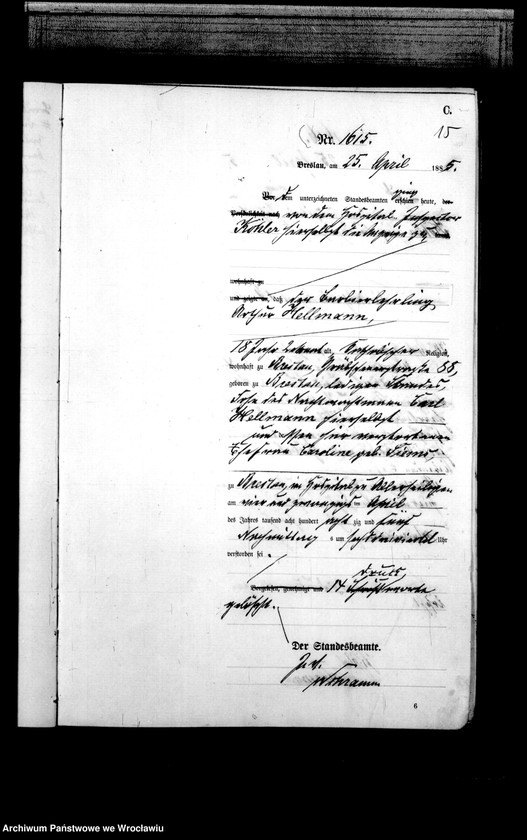 C.
15
Nr. 1615.
Breslau, am 25. April 1885.
ging
Vor dem unterzeichneten Standesbeamten erschien heute, der
Persönlichkeit nach von dem Hospital-Inspector
Köhler hierselbst die Anzeige
wohnhaft zu
und zeigte an, daß der Barbierlehrling
Arthur Hellmann,
18 Jahr alt, Religion,
wohnhaft zu Breslau, Gräbschnerstraße 88,
geboren zu Breslau, ledigen Standes,
Sohn des Nachtwachtmann Carl
Hellmann hierselbst
und dessen hier verstorbenen
Ehefrau Caroline geb.
zu Breslau, im Hospital zu Allerheiligen
am vier und zwanzigsten April
des Jahres tausend acht hundert acht zig und fünf
Nachmittags um Uhr
verstorben sei.
Druck
Vorgelesen, genehmigt und 14 worte
gelöscht.
Der Standesbeamte.
In V.
6
Archiwum Państwowe we Wrocławiu